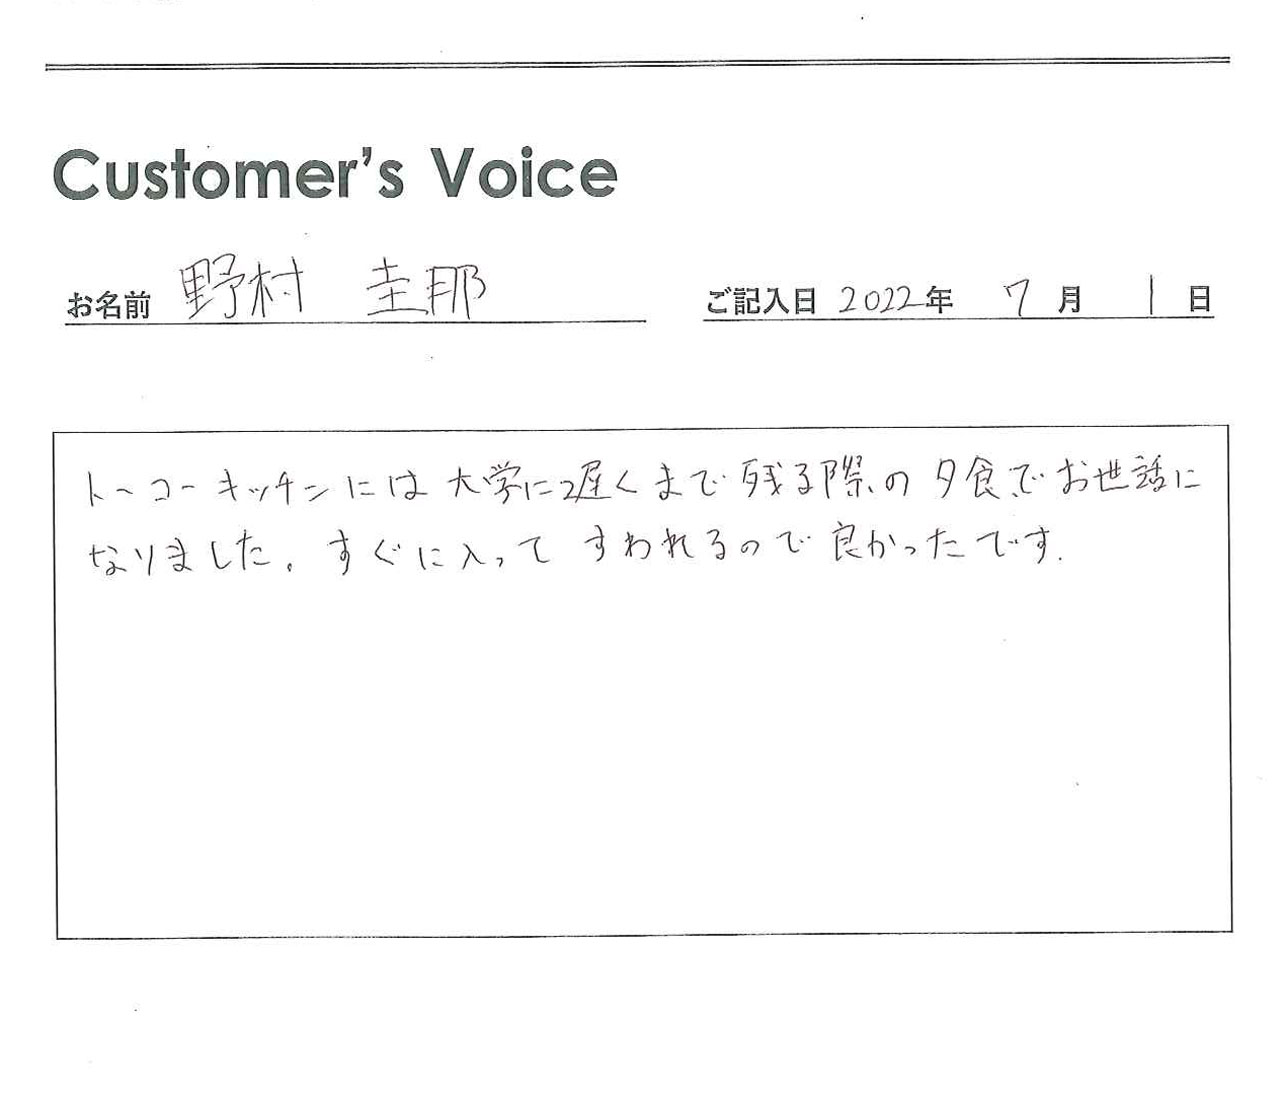 Customer's Voice
お名前 野村 圭那 ご記入日 2022年 7月 1日
トーコーキッチンには大学に遅くまで残る際の夕食でお世話に
なりました。すぐに入ってすわれるので良かったです.